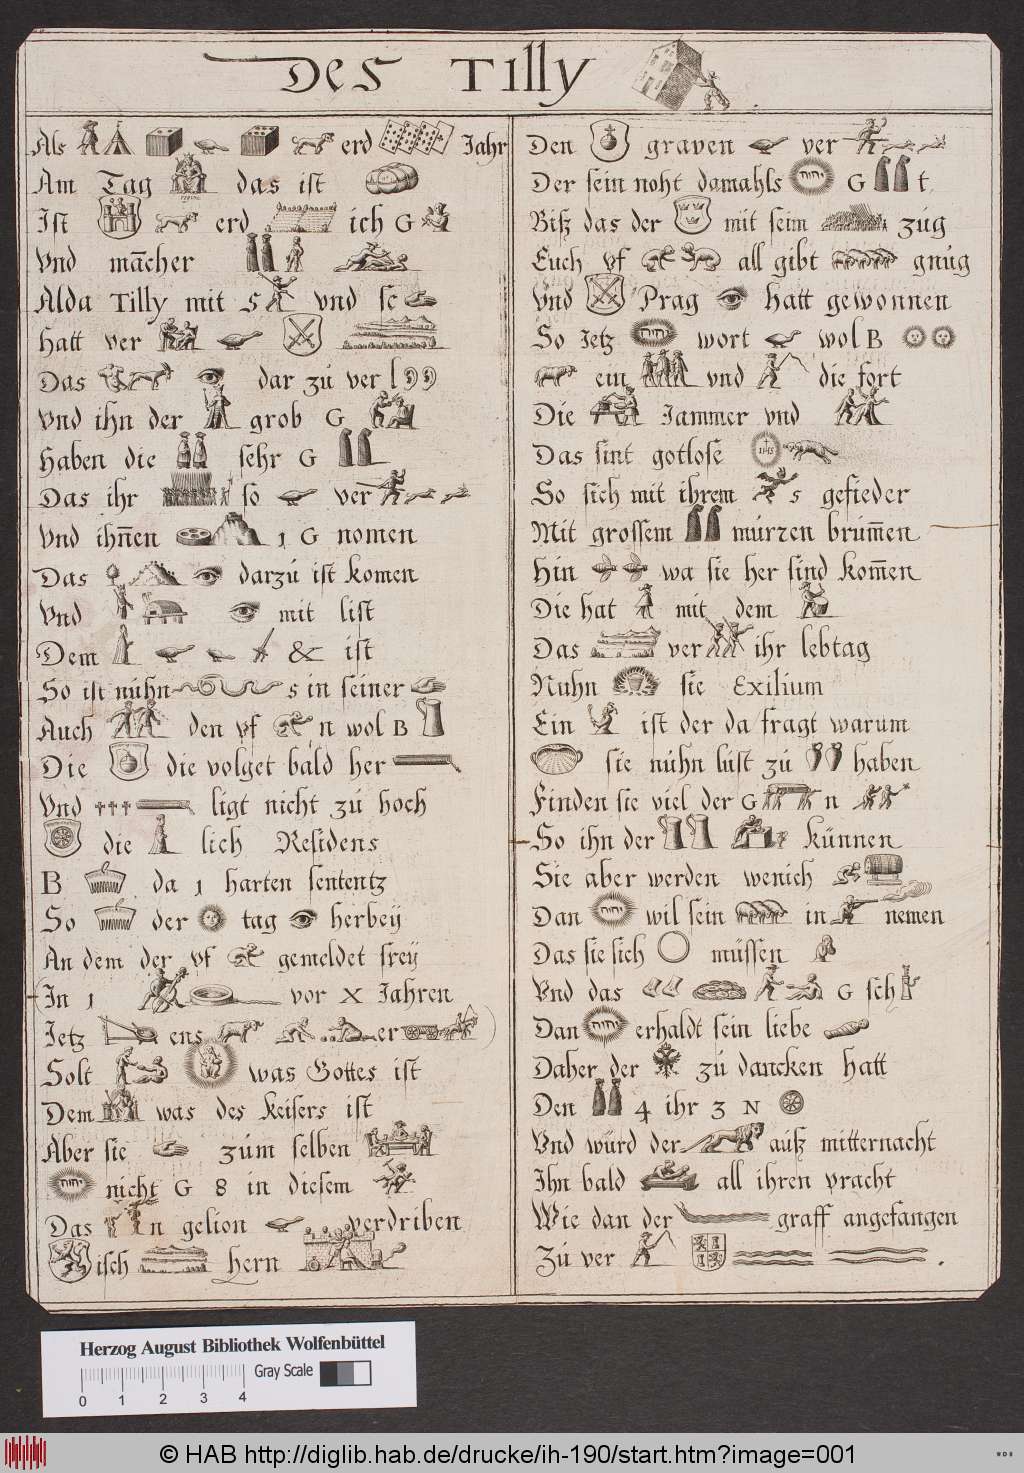 Des Tilly
Als erd Jahr
Am Tag das ist
Ist erd ich G
Vnd mācher
Alda Tilly mit S vnd se
hatt ver
Das dar zú ver l
Vnd ihn der grob G
Haben die sehr G
Das ihr so ver
Vnd ihn̄en 1 G nomen
Das darzú ist komen
Vnd mit list
Dem & ist
So ist núhn s in seiner
Auch den vf n wol B
Die die volget bald her
Vnd ligt nicht zú hoch
die lich Residens
B da 1 harten sententz
So der tag herbeÿ
An dem der vf gemeldet freÿ
(In 1 vor X Jahren
Ietz ens er )
Solt was Gottes ist
Dem was des Keisers ist
Aber sie zúm selben
יהוה nicht G 8 in diesem
Das n gelion verdriben
isch hern
Den graven ver
Der sein noht damahls יהוה G t
Biß das der mit seim zúg
Euch vf all gibt gnúg
Vnd Prag hatt gewonnen
So Ietz יהוה wort wol B
ein vnd die fort
Die Jammer vnd
Das sint gotlose IHS
So sich mit ihrem s gefieder
Mit grossem múrren brúm̄en
Hin wa sie her sind kom̄en
Die hat mit dem
Das ver ihr lebtag
Nuhn sie Exilium
Ein ist der da fragt warum
sie núhn lúst zú haben
Finden sie viel der G n
So ihn der künnen
Sie aber werden wenich
Dan יהוה wil sein in nemen
Das sie sich müssen
Vnd das G sch
Dan יהוה erhaldt sein liebe
Daher der zú dancken hatt
Den 4 ihr 3 N
Vnd würd der auß mitternacht
Ihn bald all ihren pracht
Wie dan der graff angefangen
Zú ver
Herzog August Bibliothek Wolfenbüttel
0 1 2 3 4 Gray Scale
© HAB http://diglib.hab.de/drucke/ih-190/start.htm?image=001